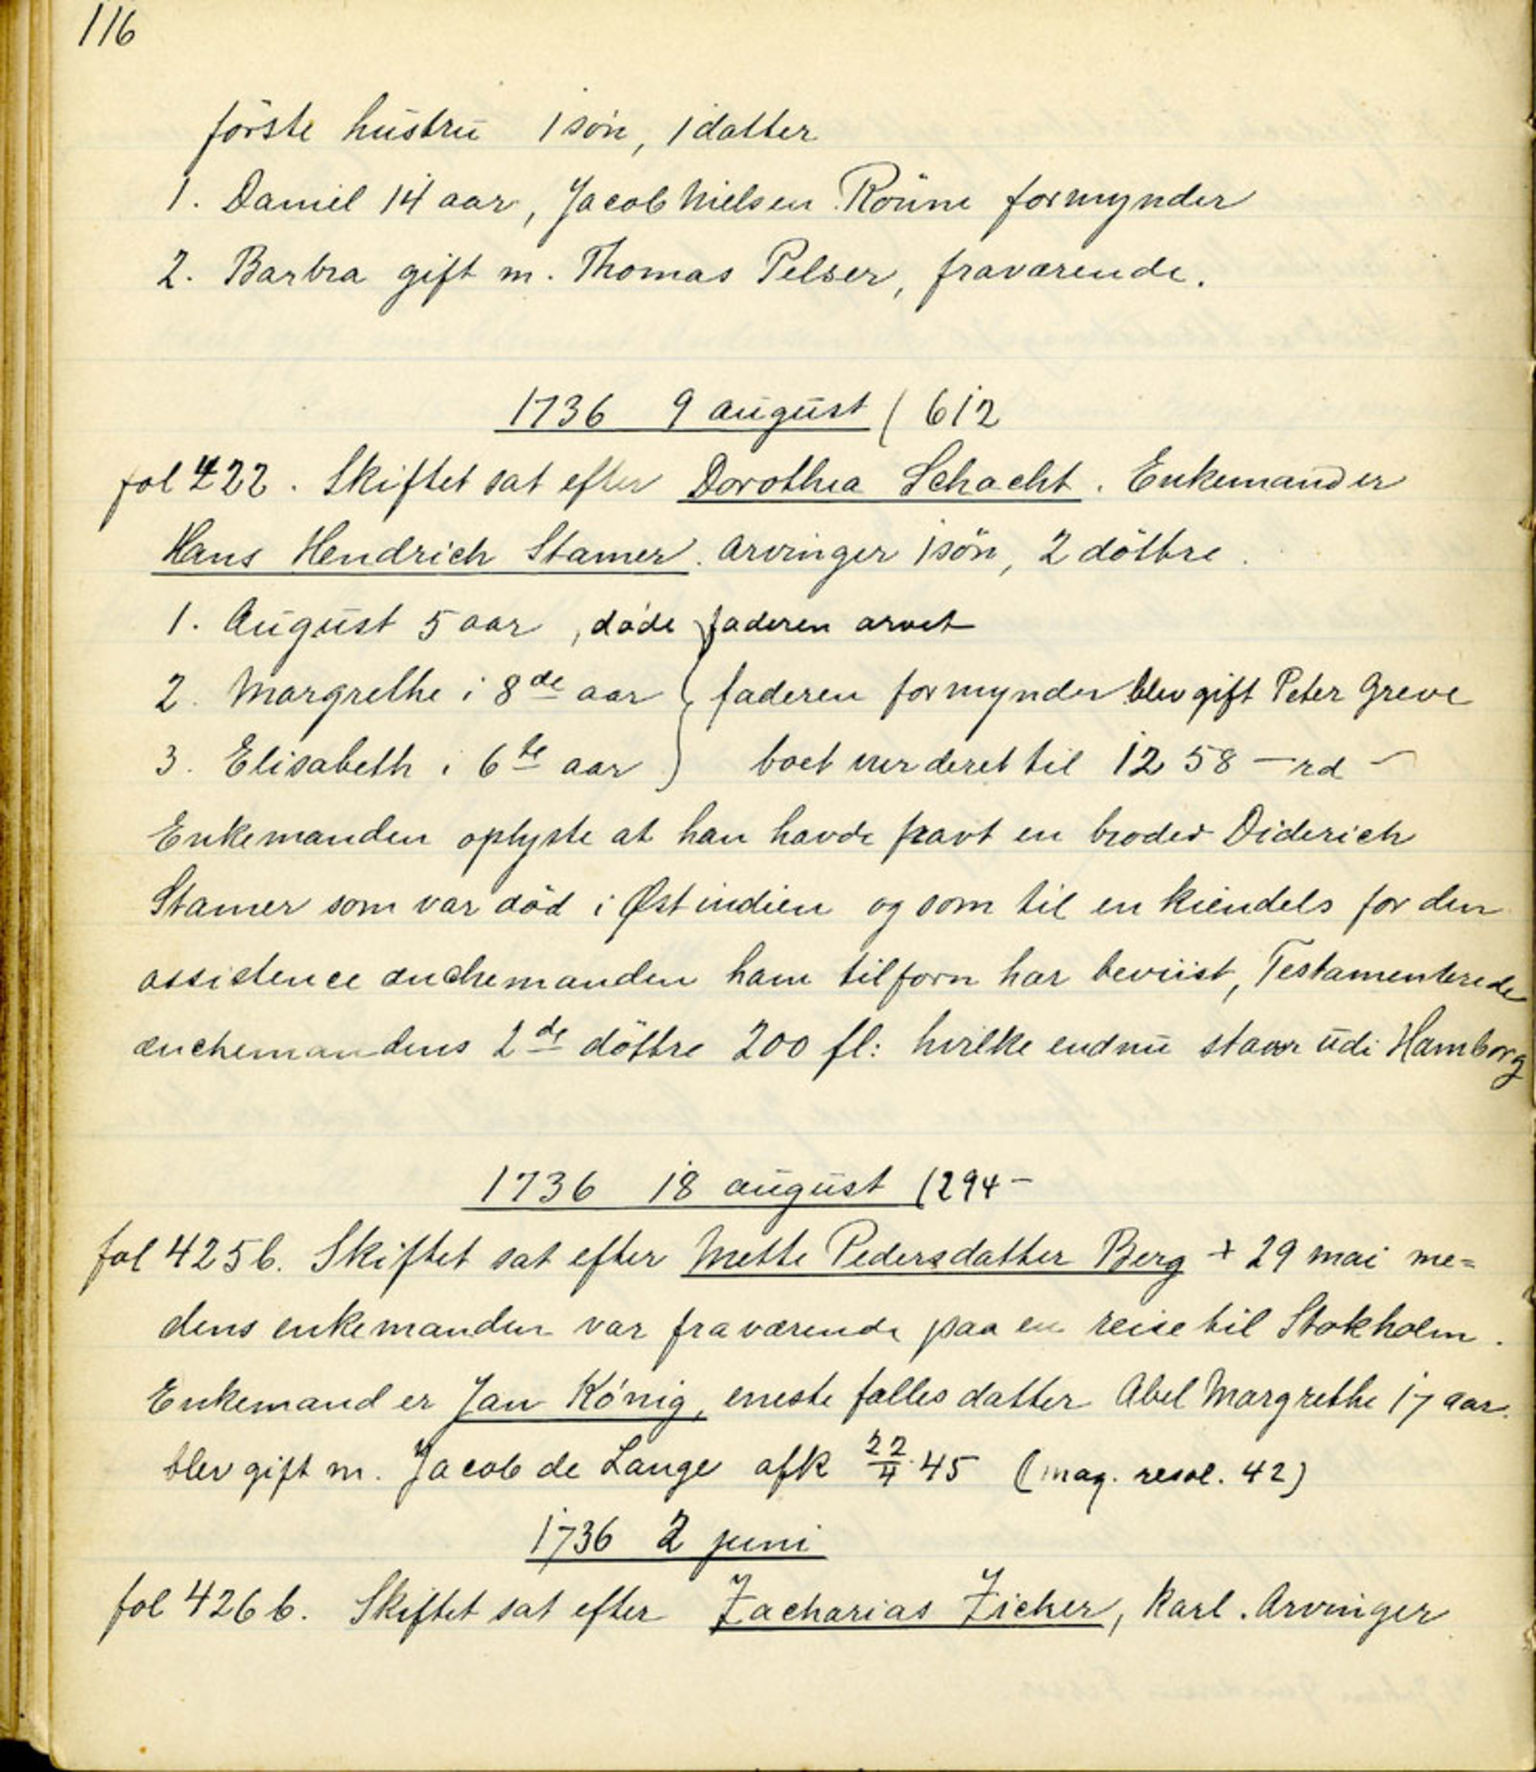 116
förste hustru 1 søn, 1 datter
1. Daniel 14 aar, Jacob Nielsen Röune formynder
2. Barbra gift m. Thomas Pelser, fraværende.
1736 9 august ( 612
fol 422. Skiftet sat efter Dorothea Schacht. Enkemand er
Hans Hendrich Stamer. Arvinger 1 søn, 2 döttre.
1. August 5 aar, døde faderen arvet
2. Margrethe i 8de aar } faderen formynder blev gift Peter Greve
3. Elisabeth i 6te aar } boet vurderet til 1258 – rd –
Enkemanden oplyste at han havde havt en broder Diderich
Stamer som var död i Østindien og som til en kiendels for den
assistence enchemanden ham tilforn har beviist, Testamenterede
enchemandens 2de döttre 200 fl: hvilke endnu staar udi Hamborg
1736 18 august (294 –
fol 425 b. Skiftet sat efter Mette Pedersdatter Berg + 29 mai me=
dens enkemanden var fraværende paa en reise til Stokholm.
Enkemand er Jan König, eneste fælles datter Abel Margrethe 17 aar.
blev gift m. Jacob de Lange afk 22/4 45 (mag. resol. 42)
1736 2 juni
fol 426 b. Skiftet sat efter Zacharias Zicher, karl. Arvinger